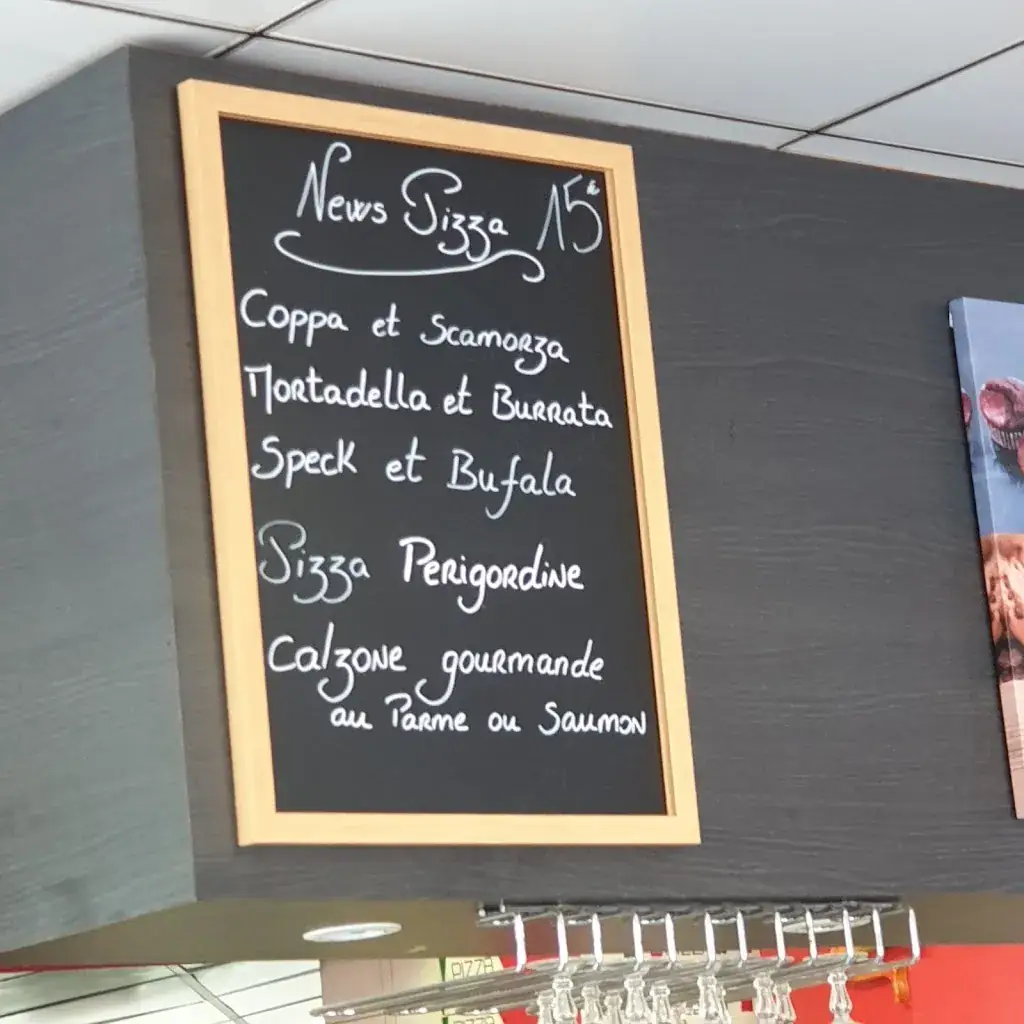 News Pizza 15€
Coppa et Scamorza
Mortadella et Burrata
Speck et Bufala
Pizza Perigordine
Calzone gourmande
au Parme ou Saumon
PIZZA